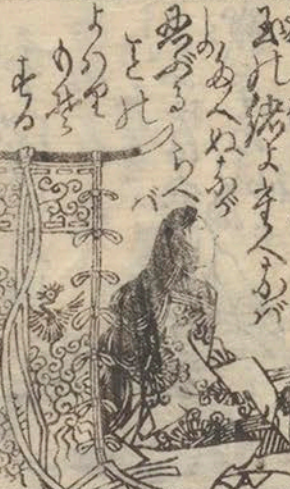 玉の緒よたへなば
たへねなが
らへ
ば
忍ぶる
ことの
よはり
もぞ
する